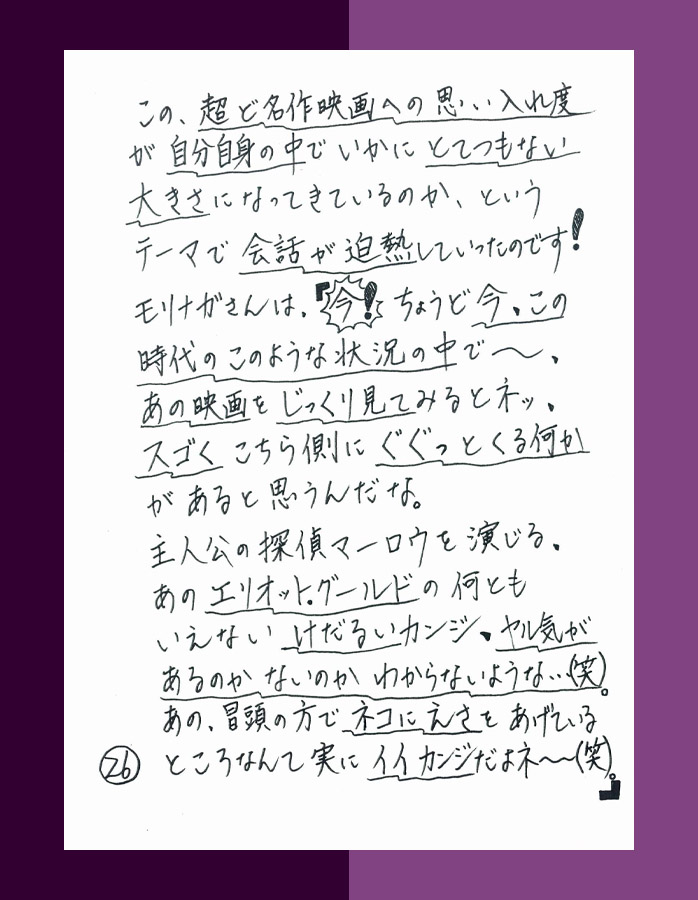 この、超ど名作映画への思い入れ度
が自分自身の中でいかにとてつもない
大きさになってきているのか、という
テーマで会話が迫熱していったのです!
モリナガさんは、『今! ちょうど今、この
時代のこのような状況の中で〜、
あの映画をじっくり見てみるとネッ、
スゴくこちら側にぐぐっとくる何か
があると思うんだな。
主人公の探偵マーロウを演じる、
あのエリオット・グールドの何とも
いえないけだるいカンジ、ヤル気が
あるのかないのかわからないような…(笑)。
あの、冒頭の方でネコにえさをあげている
ところなんて実にイイカンジだよネ〜〜(笑)。』
26